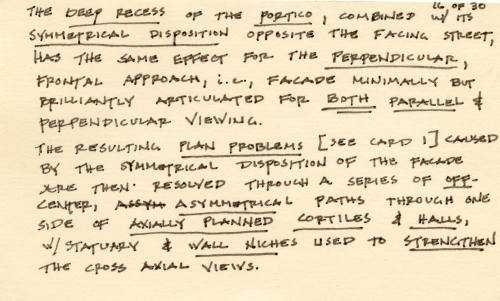 16 OF 30
THE DEEP RECESS OF THE PORTICO, COMBINED W/ ITS
SYMMETRICAL DISPOSITION OPPOSITE THE FACING STREET,
HAS THE SAME EFFECT FOR THE PERPENDICULAR,
FRONTAL APPROACH, i.e., FACADE MINIMALLY BUT
BRILLIANTLY ARTICULATED FOR BOTH PARALLEL &
PERPENDICULAR VIEWING.
THE RESULTING PLAN PROBLEMS [SEE CARD 1] CAUSED
BY THE SYMMETRICAL DISPOSITION OF THE FACADE
ARE THEN RESOLVED THROUGH A SERIES OF OFF-
CENTER, ASSYM ASYMMETRICAL PATHS THROUGH ONE
SIDE OF AXIALLY PLANNED CORTILES & HALLS,
W/ STATUARY & WALL NICHES USED TO STRENGTHEN
THE CROSS AXIAL VIEWS.